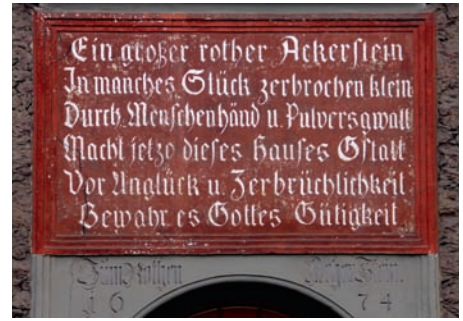 Ein großer rother Ackerstein
In manches Stück zerbrochen klein
Durch Menschenhänd u. Pulversgwalt
Macht jetzo dieses Hauses Gstalt
Vor Unglück u. Zerbrüchlichkeit
Bewahr es Gottes Gütigkeit
Zum Rothen
16 74